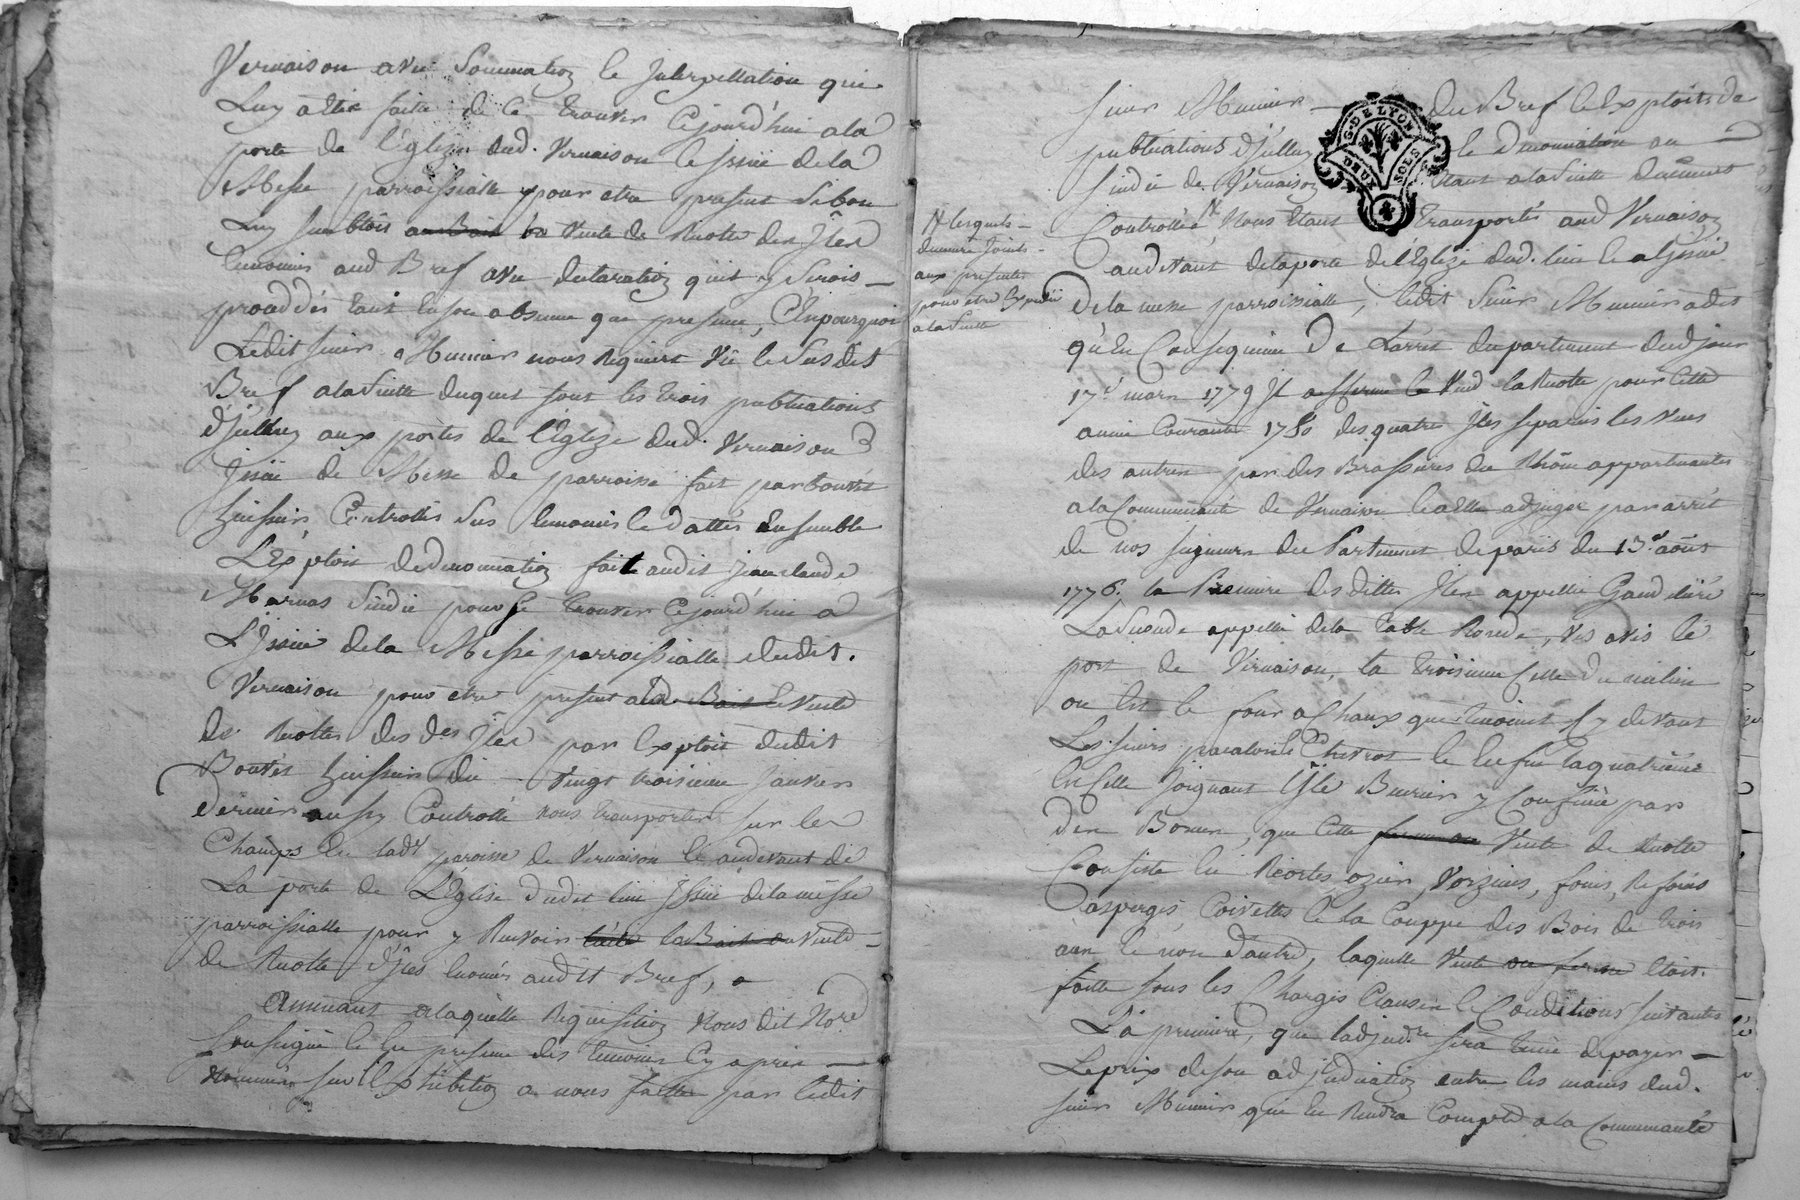 Vernaison avec Sommation & Interpellation qui
Luy a Eté faite de Ce trouver Cejourd'hui a la
porte de l'Eglize dud. Vernaison & Issuë de la
Messe parroissialle pour etre present Si bon
Luy Sembloit au Bail ou Vente de Recolte des Jles
Enoncées aud Bref avec declaration qu'il y Serois
procédés tant En son absence que presence, C'Enpourquoi
Ledit sieur Meunier nous Requiert Vû le Susdit
Bref a la Suitte duquel sont les trois publications
d'Jcelluy aux portes de l'Eglize dud. Vernaison a
Jssuë de Messe de parroisse fait par Bouvét
huissier Controllés Sus Enoncés & dattés Ensemble
L'Exploit de denonciation fait audit jean claude
Marnas Sindic pour se trouver Cejourd'hui a
L'Jssuë de la Messe parroissialle dudit.
Vernaison pour etre present aud Bail & Vente
de Recoltes des d.es Jles par Exploit dudit
Bouvét huissier du Vingt troisieme Janvier
dernier aussy Controllé nous transporter sur les
Champs En lad.e paroisse de Vernaison & audevant de
La porte de L'Eglise dudit lieu Jssuë de la messe
parroissialle pour y Recevoir le Bail ou Vente
de Recolte d'Jles Enoncés audit Bref, a
Aninuant a laquelle Requisition Nous dit No.re
Soussigné & En presence des temoins Cy après
Nommés sur l'Exhibition a nous faitte par ledit
sieur Meunier du Bref & Exploits de
publications d'Jcelluy & denonciation au
Sindic de Vernaison Etant a la Suitte duëment
Controllés, Nous Etant transportés aud Vernaison
audevant de la porte de l'Eglize dud. lieu & a l'Jssuë
de la messe parroissialle, ledit Sieur Meunier a dit
qu'En Consequence de L'arrét du parlement dudjour
17.e mars 1779 Jl afferme & Vend la Recolte pour Cette
année Courante 1780 des quatre Jles separées les unes
des autres par des Brassieres du Rhône appartenantes
a la Communauté de Vernaison & a Elle adjugée par arrét
de nos seigneurs du Parlement de paris du 13.e aoûst
1776. la Premiere desdittes Jles appellée Gaudelire
La Seconde appellée de la table Ronde, Vis avis le
port de Vernaison, la troisieme Celle du milieu
ou Est le four a Chaux que tenoient Cy devant
Les sieurs & Chevrot & Enfin la quatrième
En Celle Joignant l'Jsle Bernier y Confinée par
des Bornes, que Cette ferme ou Vente de Recolte
Consiste En Reortes ozier, Vorzines, foins, Refoins
asperges, Coivettes & la Couppe des Bois de trois
ans & non d'autre, laquelle Vente ou ferme Etois.
faitte sous les Charges Clauses & Conditions suivantes
La premiere, que l'adjud.re sera tenu de payer
Le prix de son adjudication entre les mains dud.
sieur Meunier qui En Rendra Compte a la Communauté
N lesquels
demeure Joints
aux presentes
pour etre Expedié
a la Suitte
G. DE LYON
DEUX SOLS